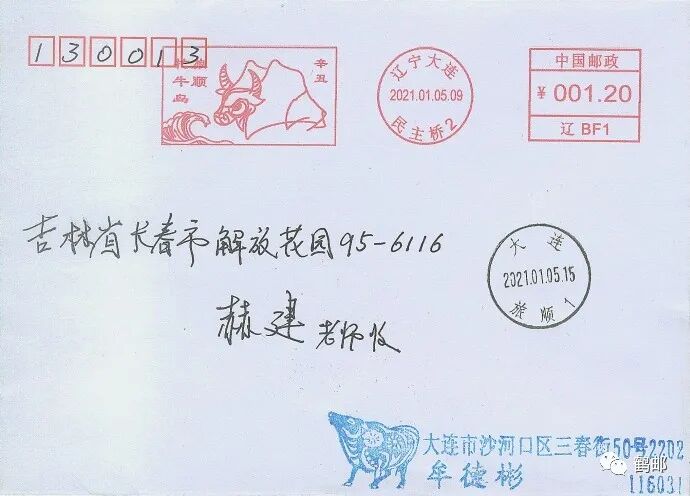 130013
旅顺
牤牛岛
辛丑
辽宁大连
2021.01.05.09
民主桥2
中国邮政
¥ 001.20
辽 BF1
吉林省长春市解放花园95-6116
赫建老师收
大连
2021.01.05.15
旅顺1
大连市沙河口区三春街50号2202
牟德彬
116031
鹤邮